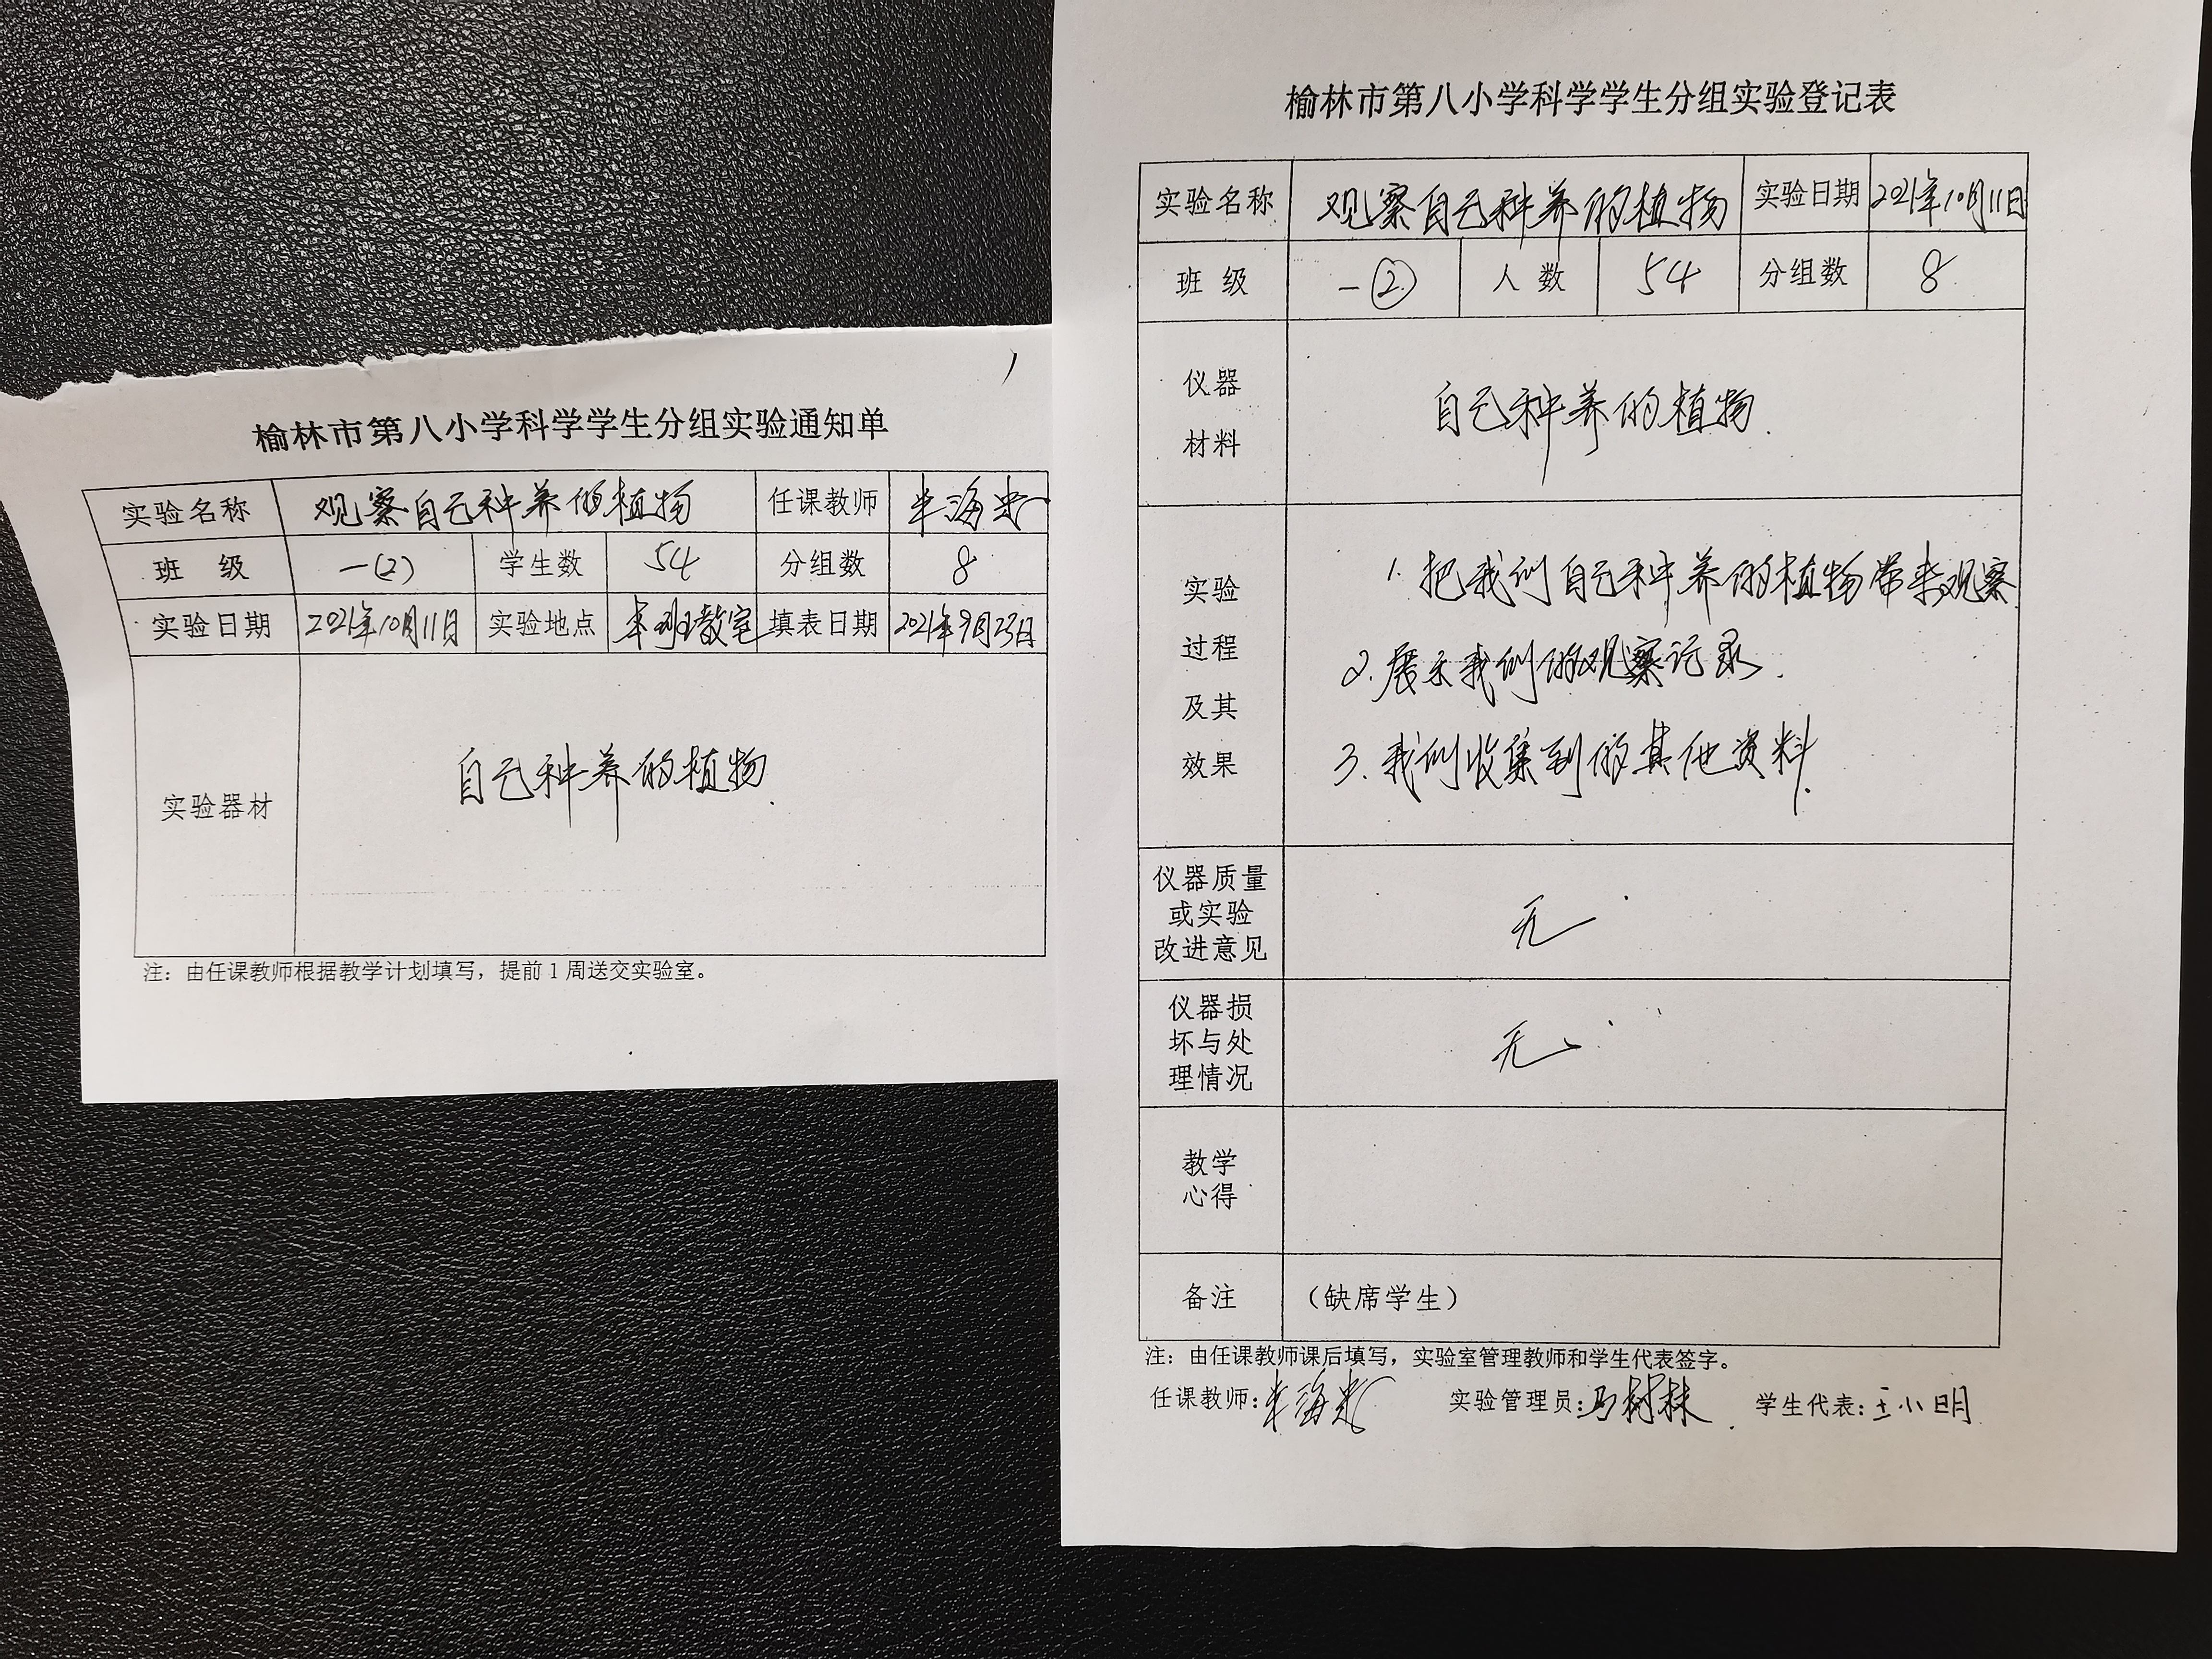 榆林市第八小学科学学生分组实验通知单
实验名称 观察自己种养的植物 任课教师
班 级 一(2) 学生数 54 分组数 8
实验日期 2021年10月11日 实验地点 本班教室 填表日期 2021年9月23日
实验器材 自己种养的植物.
注：由任课教师根据教学计划填写，提前1周送交实验室。
榆林市第八小学科学学生分组实验登记表
实验名称 观察自己种养的植物 实验日期 2021年10月11日
班 级 一② 人 数 54 分组数 8
仪器
材料
自己种养的植物.
实验
过程
及其
效果
1. 把我们自己种养的植物带来观察
2. 展示我们的观察记录.
3. 我们收集到的其他资料.
仪器质量
或实验
改进意见
无.
仪器损
坏与处
理情况
无.
教学
心得
备注 （缺席学生）
注：由任课教师课后填写，实验室管理教师和学生代表签字。
任课教师: 实验管理员: 学生代表: 王小明